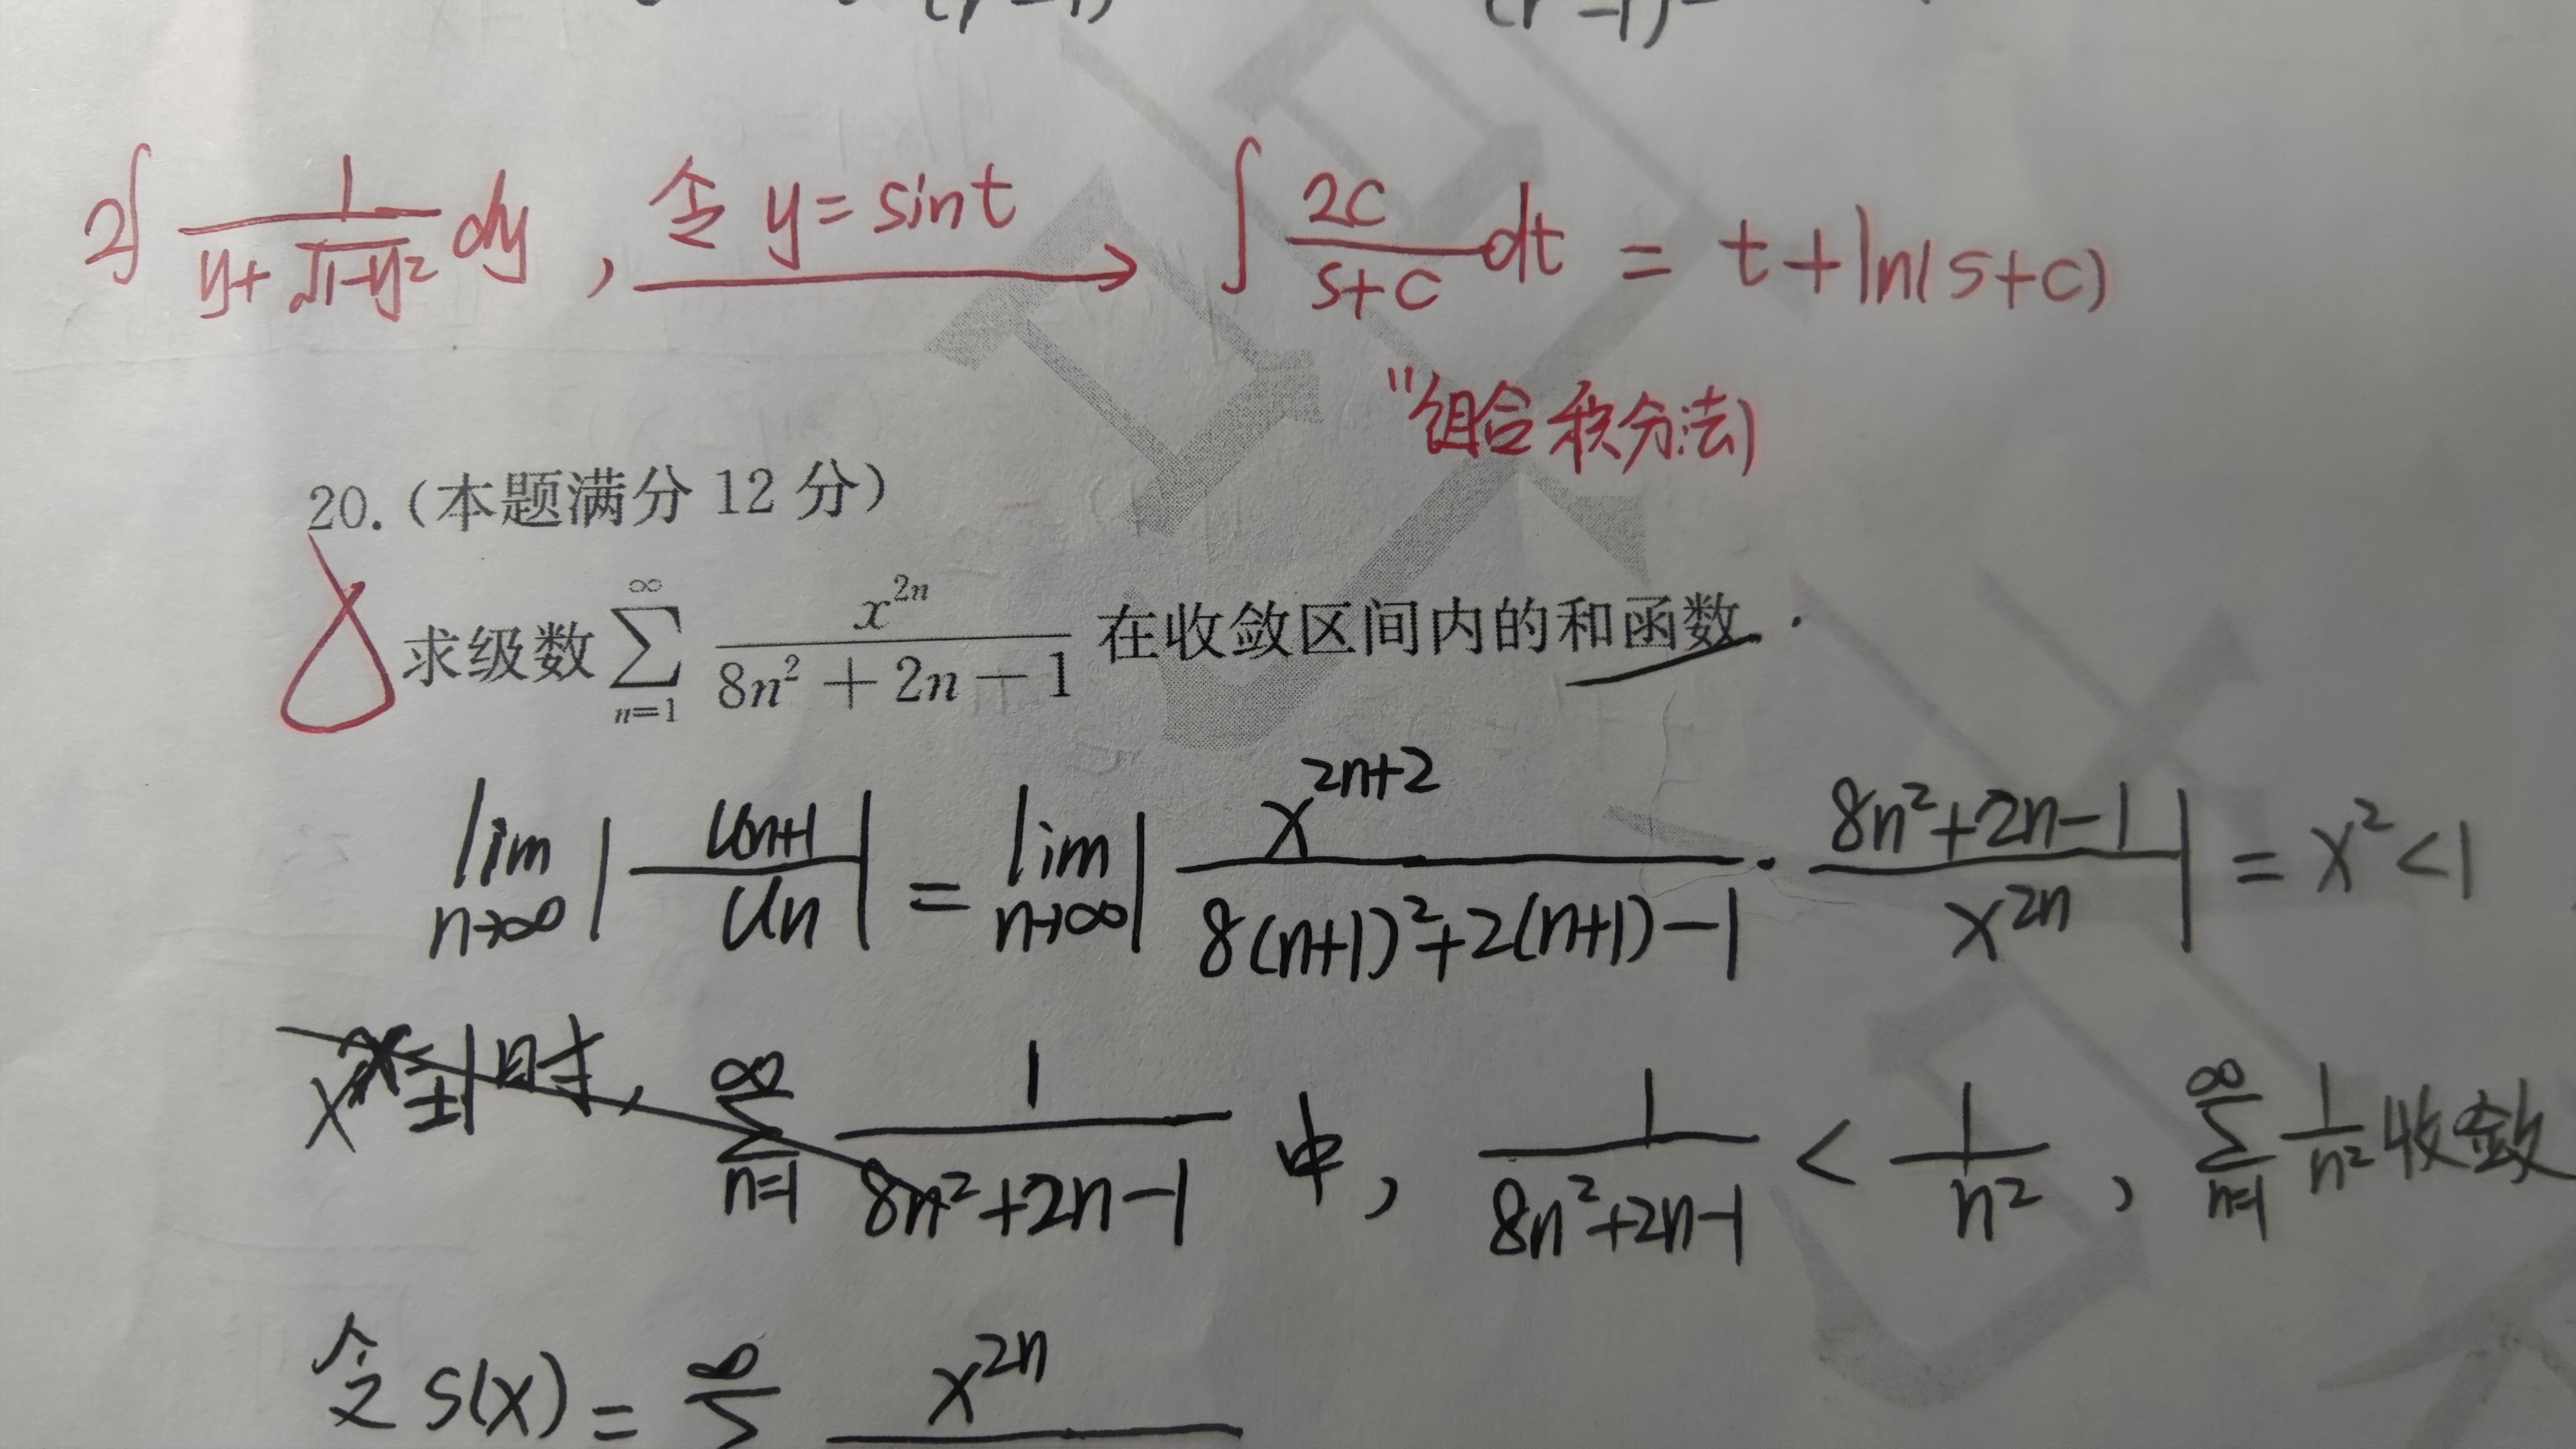 2∫ 1/(y+√(1-y²)) dy , 令 y=sint → ∫ 2c/(s+c) dt = t+ln(s+c)
"组合积分法)
20.(本题满分 12 分)
求级数 ∑_{n=1}^{∞} x^{2n}/(8n²+2n−1) 在收敛区间内的和函数.
lim_{n→∞} |u_{n+1}/u_n| = lim_{n→∞} | x^{2n+2}/(8(n+1)²+2(n+1)−1) · (8n²+2n−1)/x^{2n} | = x²<1
x=±1时, ∑_{n=1}^{∞} 1/(8n²+2n−1) 中, 1/(8n²+2n−1) < 1/n² , ∑_{n=1}^{∞} 1/n² 收敛
令 S(x) = ∑^{∞} x^{2n}